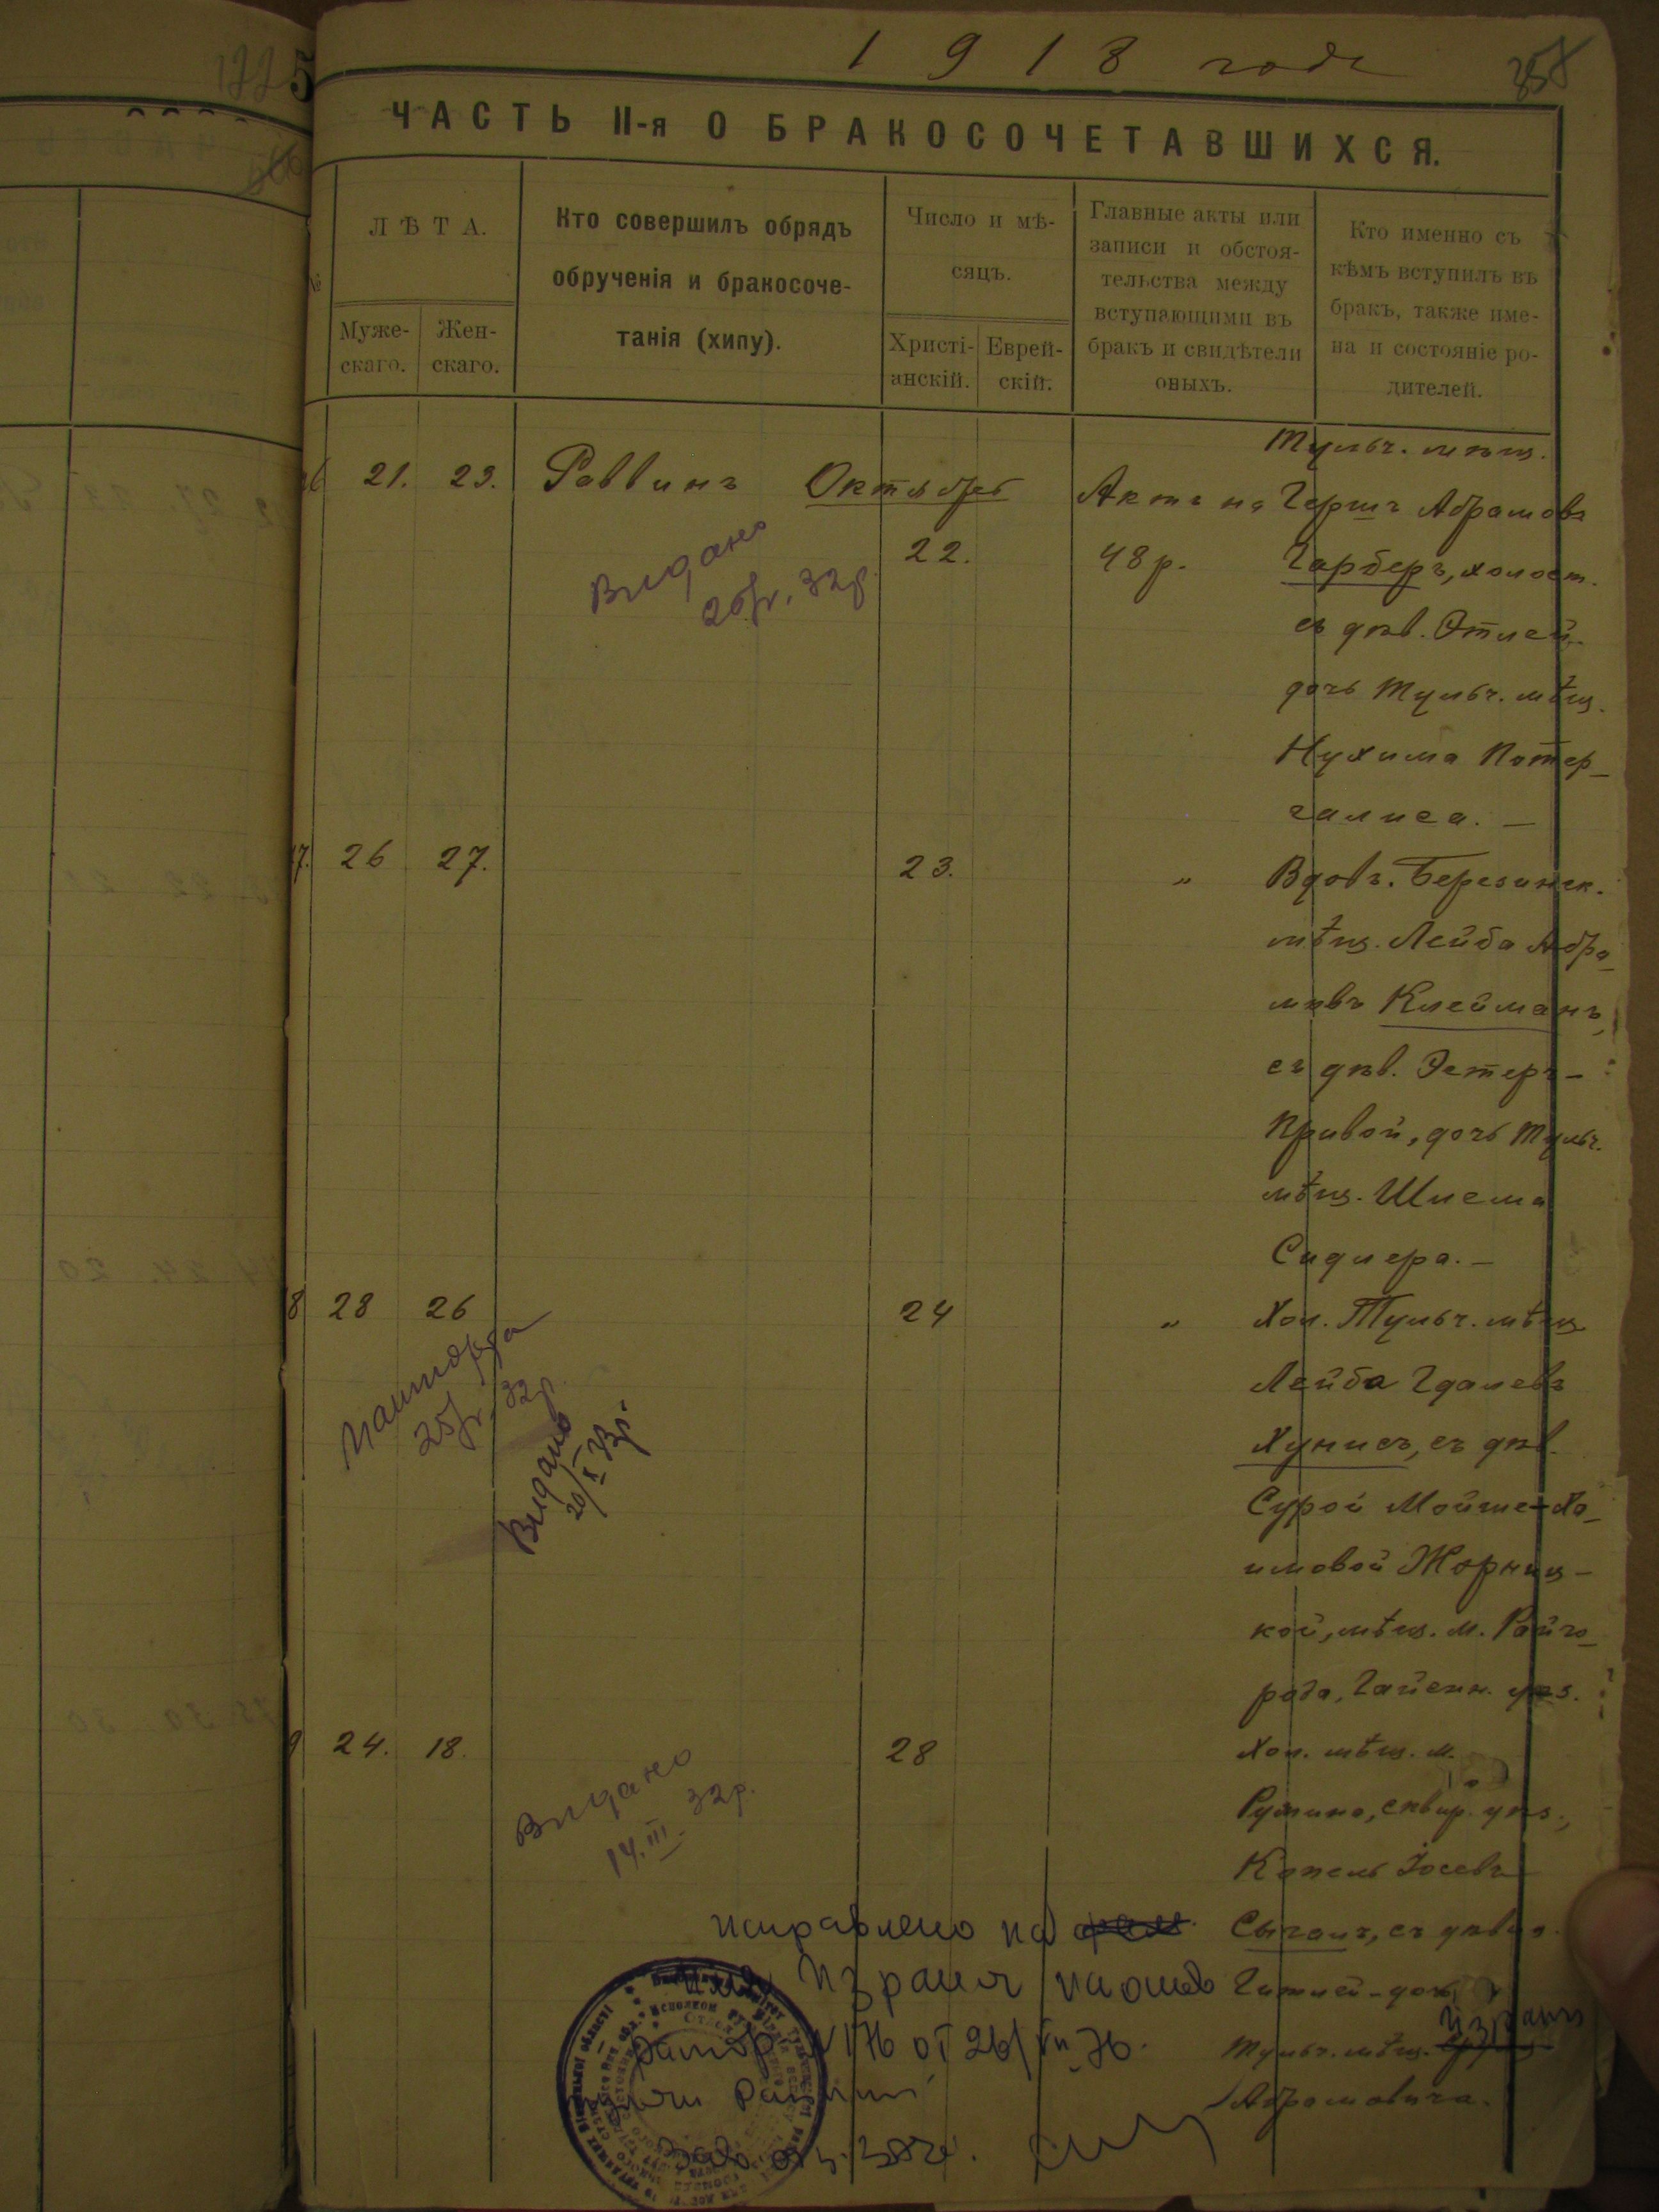 1918 года
ЧАСТЬ II-я О БРАКОСОЧЕТАВШИХСЯ.
№
ЛѢТА.
Муже-
скаго.
Жен-
скаго.
Кто совершилъ обрядъ
обрученія и бракосоче-
танія (хипу).
Число и мѣ-
сяцъ.
Христі-
анскій.
Еврей-
скій.
Главные акты или
записи и обстоя-
тельства между
вступающими въ
бракъ и свидѣтели
оныхъ.
Кто именно съ
кѣмъ вступилъ въ
бракъ, также име-
на и состояніе ро-
дителей.
21. 23. Раввинъ Октября Актъ на
22. 48 р.
Тульч. мѣщ.
Гершъ Абрамовъ
Гарберъ, холост.
съ дѣв. Этлей
дочь Тульч. мѣщ.
Нухима Потер-
галиса. —
Видано
32р
26 27. 23. "
Вдовъ. Березинск.
мѣщ. Лейба Абра-
мовъ Клейманъ,
съ дѣв. Эстеръ-
Кривой, дочь Тульч.
мѣщ. Шлема
Сидлера. —
28 26 24 "
Хол. Тульч. мѣщ.
Лейба Гдалевъ
Хунисъ, съ дѣв.
Сурой Мойше-Ха-
имовой Жорниц-
кой, мѣщ. м. Райго-
рода, Гайсин. уѣз.
32р.
Видано
20/X 32р.
24. 18. 28
Хол. мѣщ. м.
Ружина, сквир. уѣз.,
Копель Іосевъ
Сыганъ, съ дѣвиц.
Гитлей - дочь
Тульч. мѣщ. Израиля
Абрамовича.
Видано
14.III. 32р.
исправлено на
Израиля